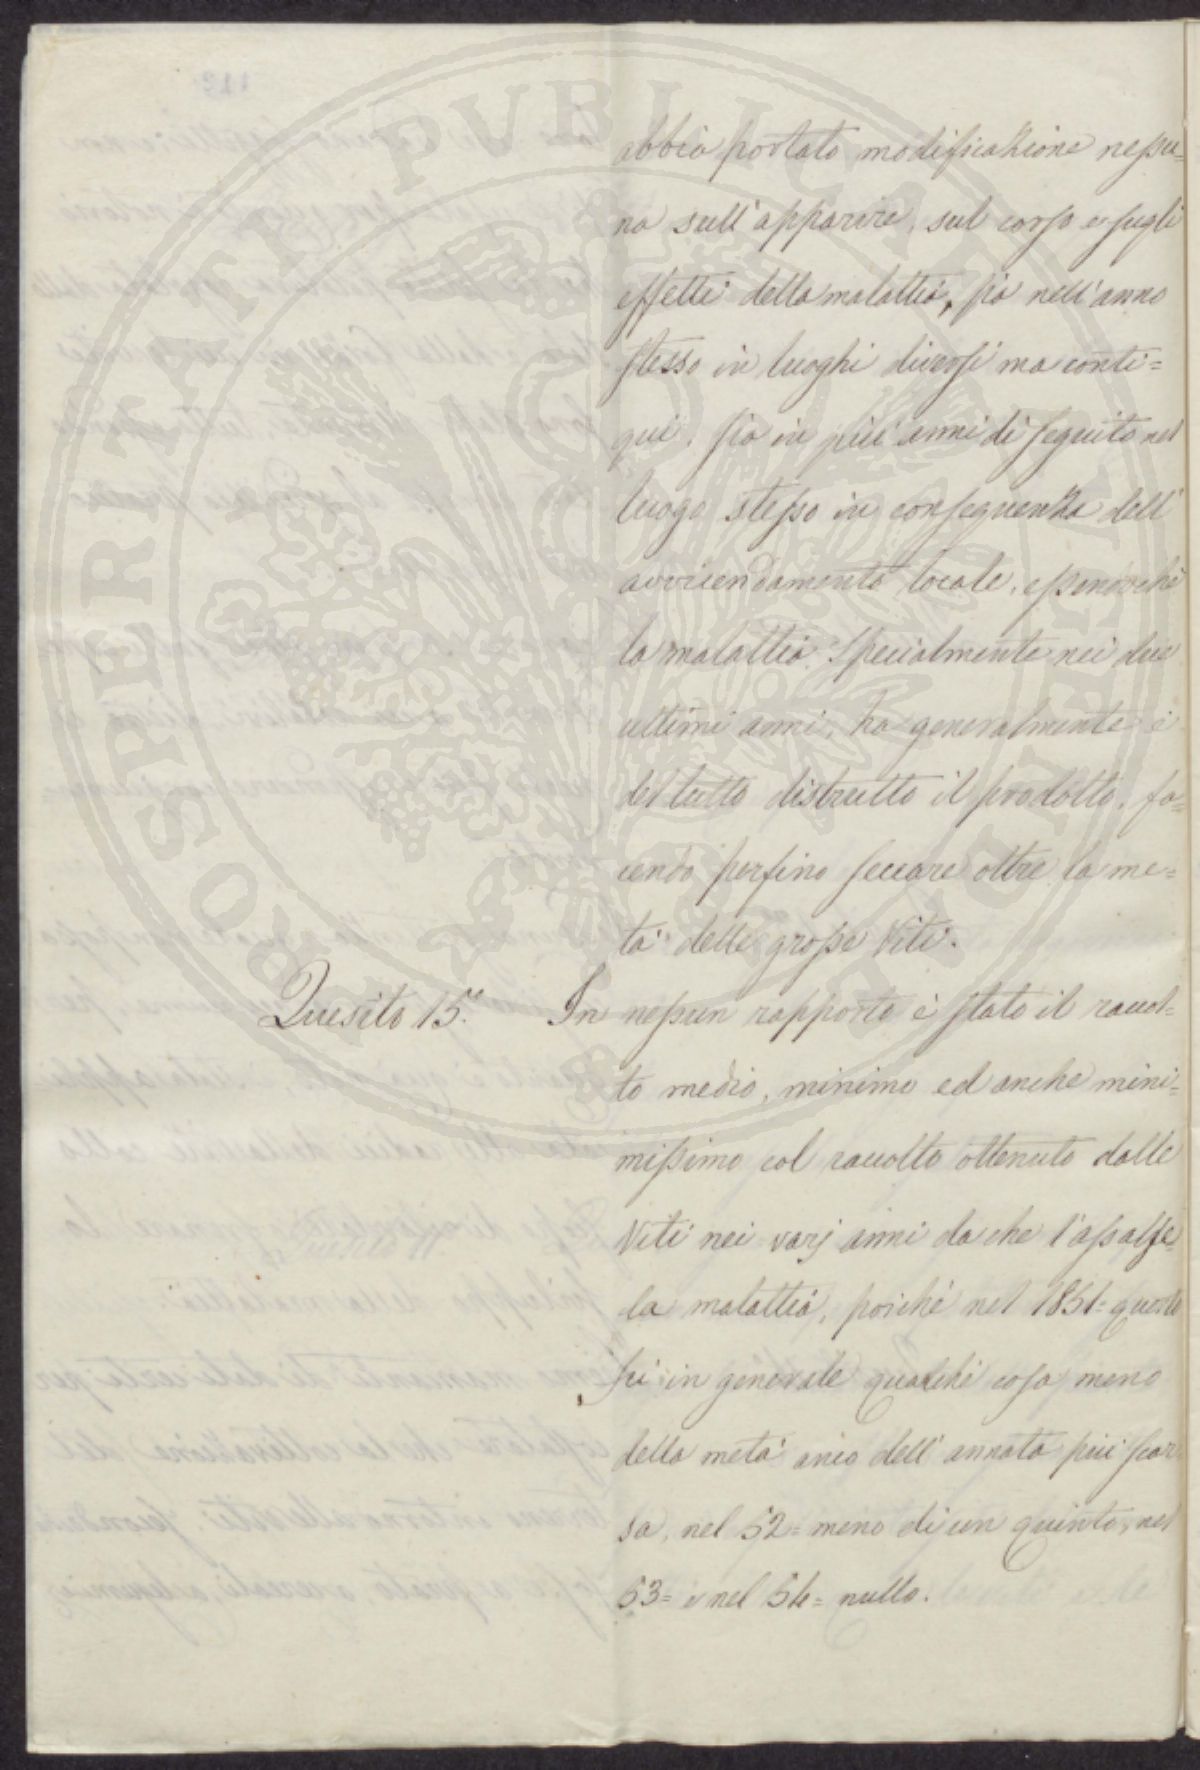 abbia portato modificazione nessu=
na sull'apparire, sul corso e sugli
effetti della malattia, sia nell'anno
stesso in luoghi diversi ma conti=
gui, sia in più anni di seguito nel
luogo stesso in conseguenza dell'
avvicendamento locale, essendochè
la malattia, specialmente nei due
ultimi anni, ha generalmente e
del tutto distrutto il prodotto, fa=
cendo perfino seccare oltre la me=
tà delle grosse Viti.
Quesito 15.° In nessun rapporto è stato il racol=
to medio, minimo ed anche mini=
missimo col racolto ottenuto dalle
Viti nei varj anni da che l'assalse
la malattia, poichè nel 1851= questo
fù in generale qualche cosa meno
della metà anco dell'annata più scar
sa, nel 52= meno di un quinto, nel
53= e nel 54= nullo.
PROSPERITATI PVBLICAE AVGENDAE